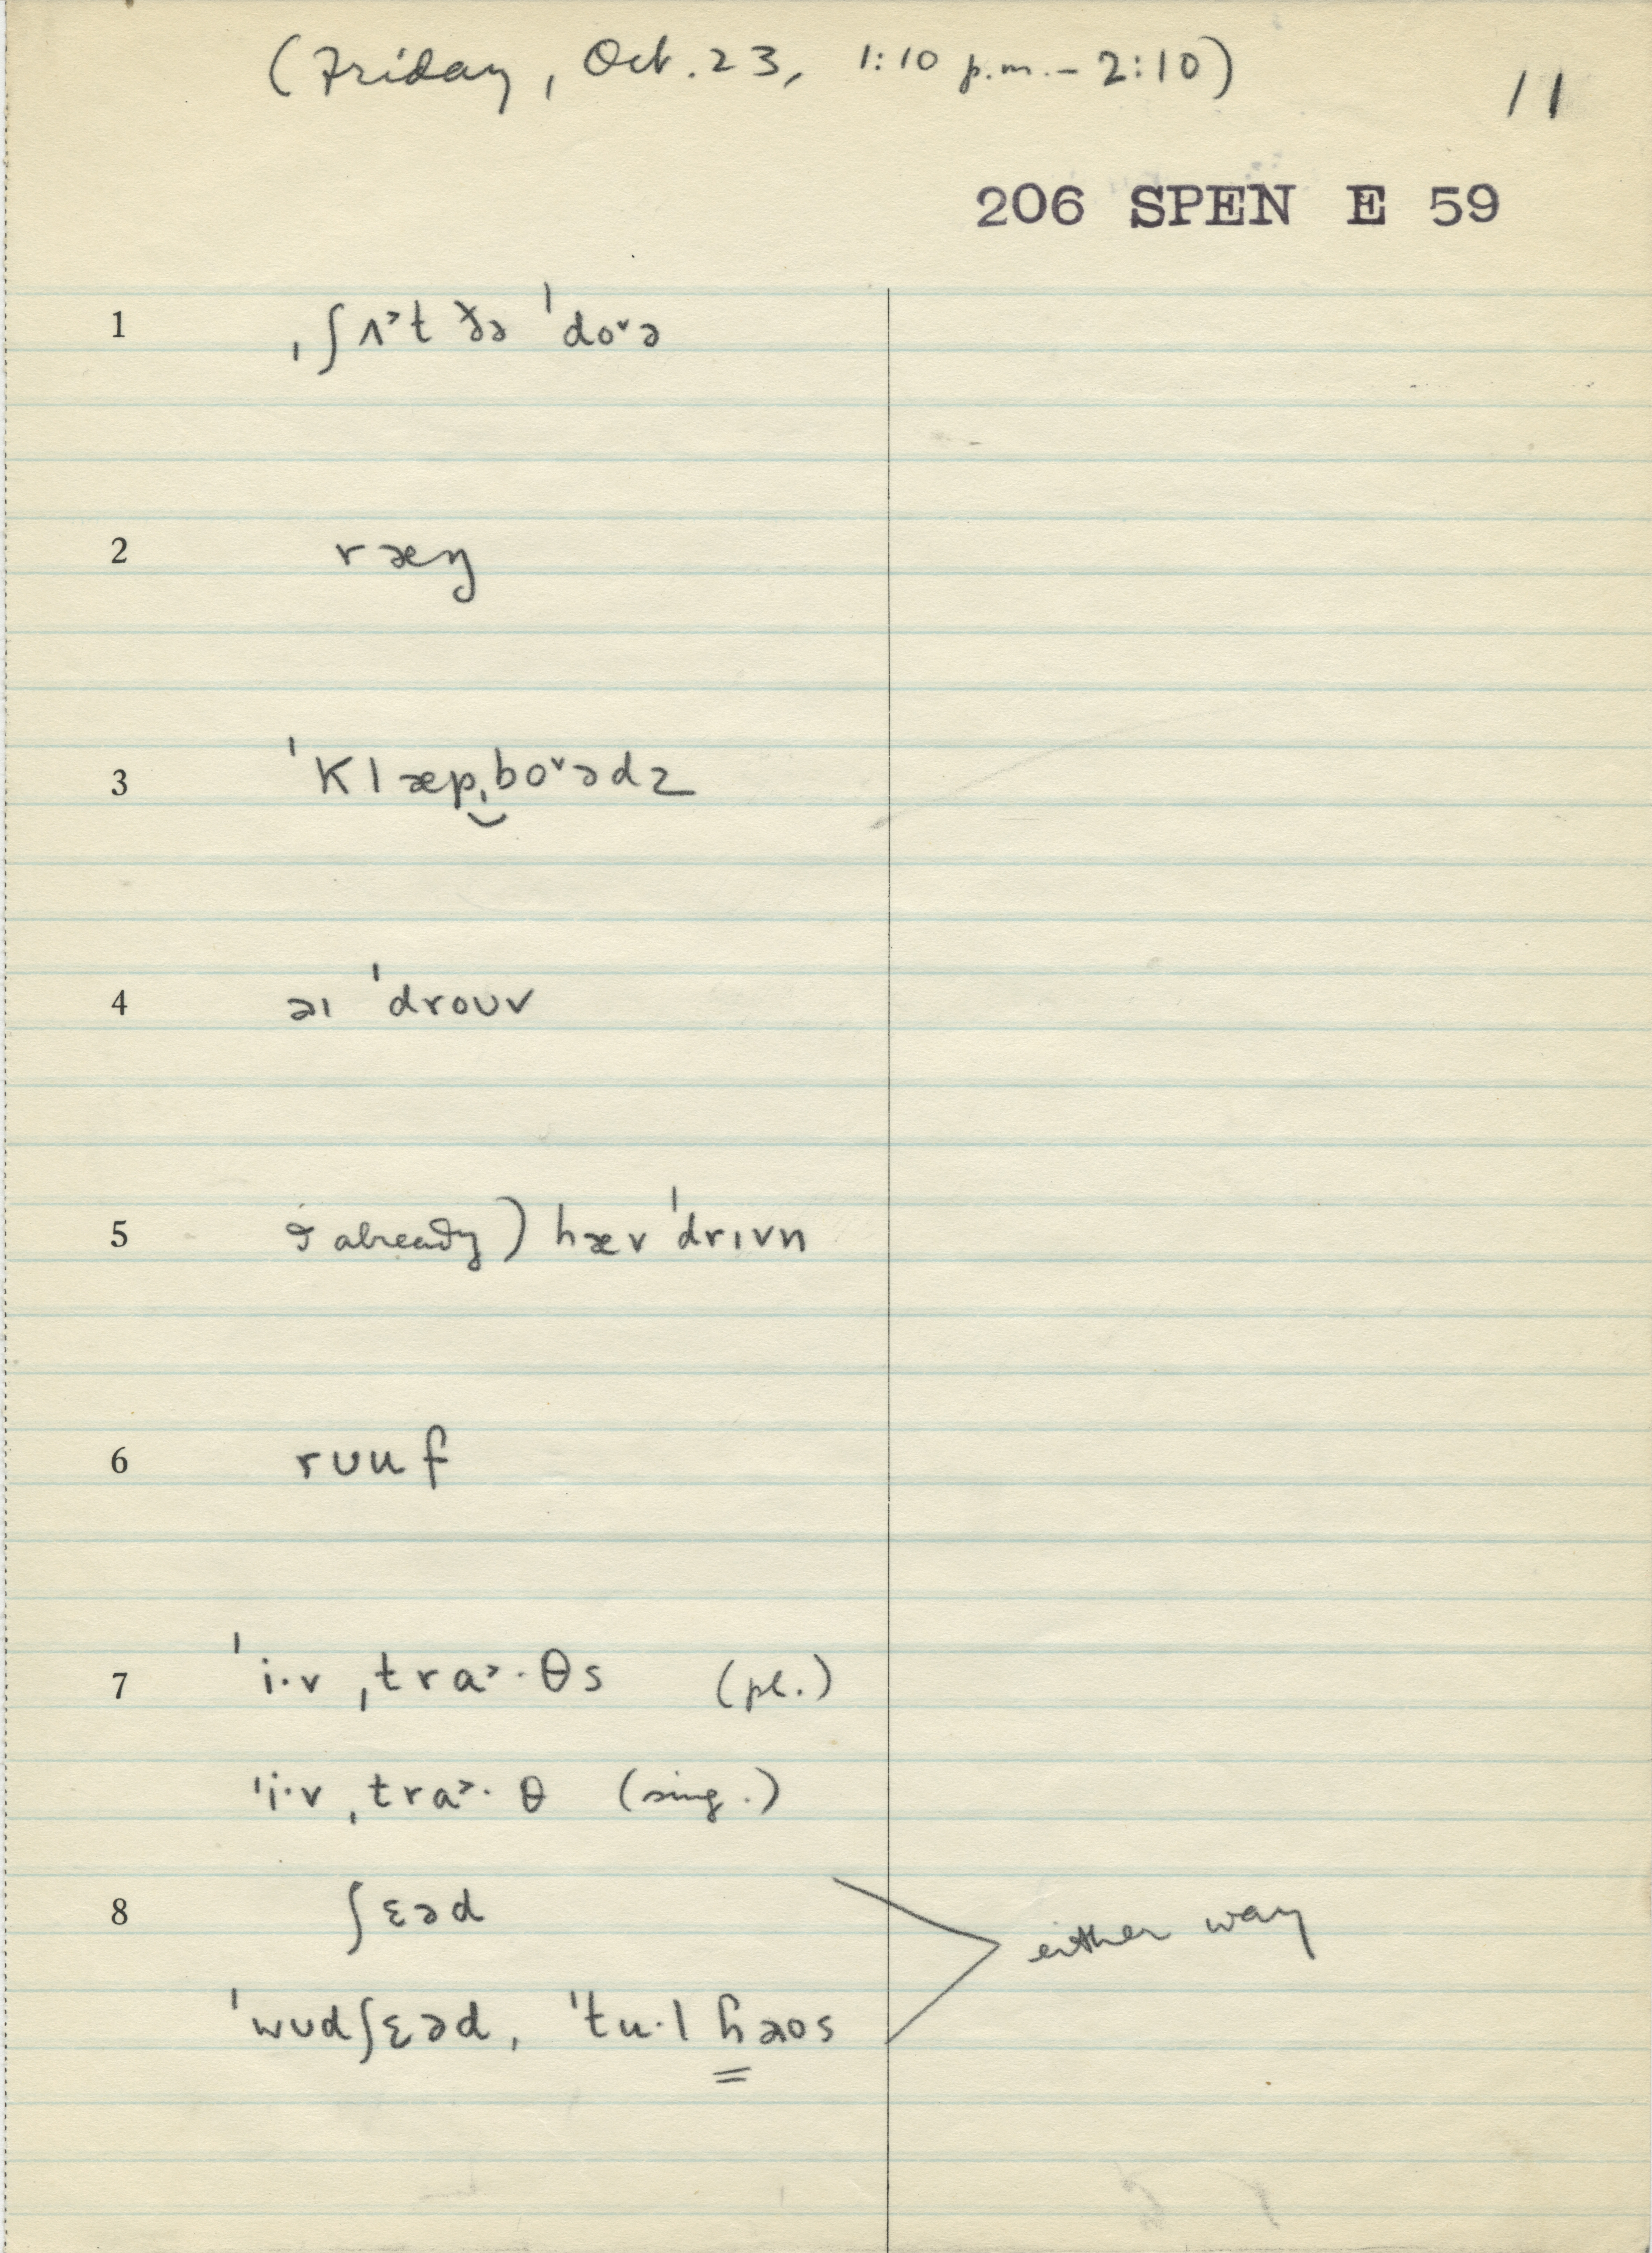 (Friday, Oct. 23, 1:10 p.m. – 2:10)
11
206 SPEN E 59
1 ˌʃʌ˃t ðə ˈdo˅ə
2 ræŋ
3 ˈklæpˌbo˅ədz
4 əɪ ˈdroʊv
5 I already) hæv ˈdrɪvn
6 rʊuf
7 ˈi·v ˌtra˃·θs (pl.)
ˈi·v ˌtra˃·θ (sing.)
8 ʃɛəd
either way
ˈwʊdʃɛəd, ˈtu·l ɦəʊs